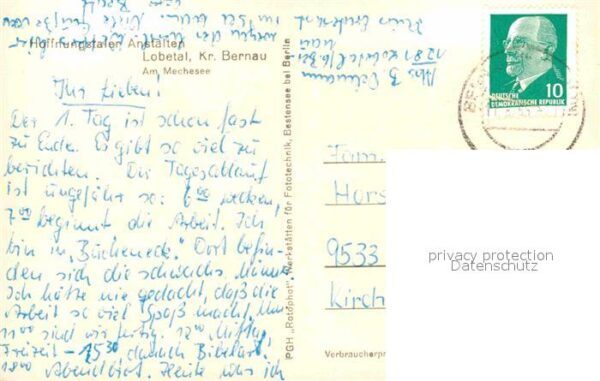 Hoffnungstaler Anstalten
Lobetal, Kr. Bernau
Am Mechesee
Ihr Lieben!
Der 1. Tag ist schon fast
zu Ende. Es gibt so viel zu
berichten. Der Tagesablauf
ist ungefähr so: 600 wecken,
700 beginnt die Arbeit. Ich
bin in "Bucheneck." Dort befin-
den sich die schwachs. Männer.
Ich hätte nie gedacht, daß die
Arbeit so viel Spaß macht. Um
1100 sind wir fertig. 1200 Mittag,
Freizeit - 1530 danach Bibelarb.
1800 Abendbrot. Heute war ich
1281 Lobetal
PGH "Rotophot", Werkstätten für Fototechnik, Bestensee bei Berlin
10
DEUTSCHE
DEMOKRATISCHE REPUBLIK
Fam.
Hors
9533
Kirch
privacy protection
Datenschutz
Verbraucherpr